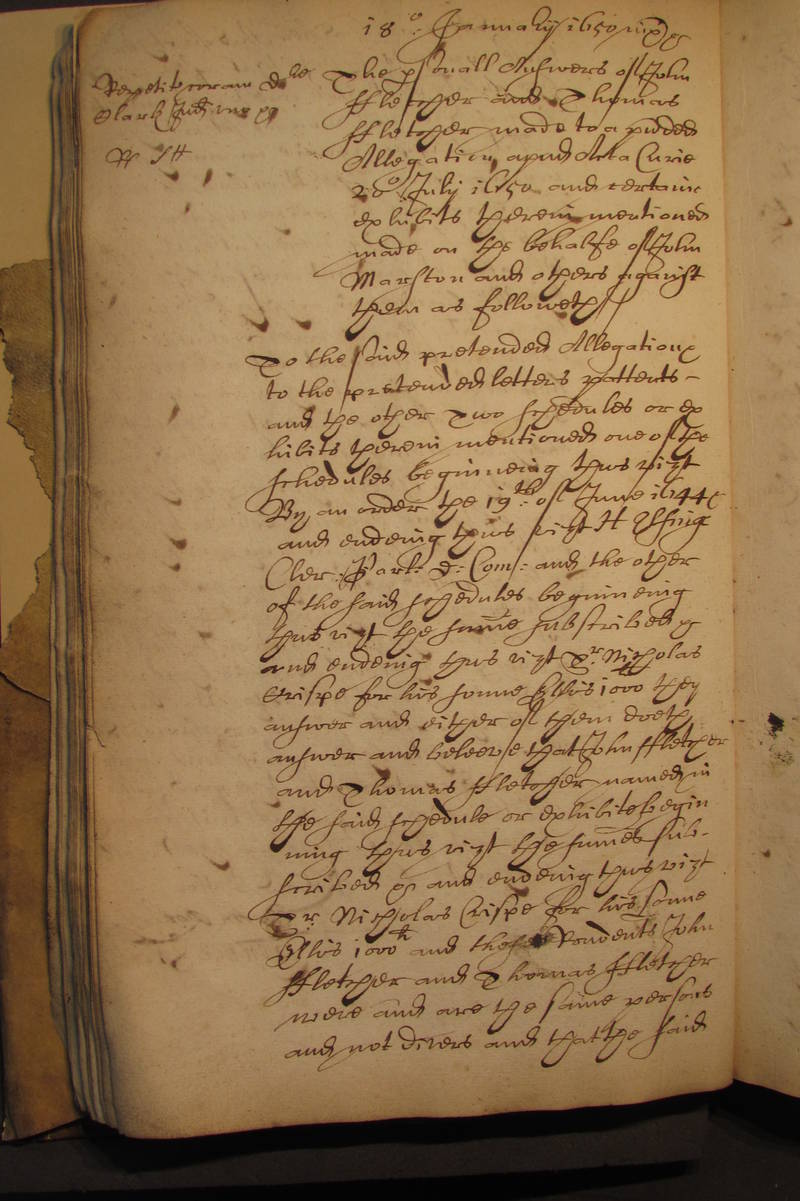 18o: January 1650
Repetit coram
Clark
The personall Answers of John
ffletcher and Thomas
ffletcher made to a p'nded
Allegation apud Acta Curie
20o July 1650 and certaine
exhibits therein mentioned
made on the behalfe of John
Marston and others against
them as followeth
To the said pretended Allegation
to the pretended letters pattents -
and the other Two schedules or ex
hibits therein mentioned one of the
schedules beginneing thus vizt
By an order the 19th: of June 1644
and endeing thus vizt H Elsing
Cler: Parl: D: Com: and the other
of the said schedules beginneing
thus vizt the summe subscribed
and endeing thus vizt Sr. Nicholas
Crispe for his sonne Ellis 1000 they
answer and either of them doeth
answer and beleeve that John ffletcher
and Thomas ffletcher named in
the said schedule or exhibite begin
ning thus vizt the summes sub-
scribed and endeing thus vizt
Sr. Nicholas Crispe for his sonne
Ellis 1000li and these Rondents John
ffletcher and Thomas ffletcher
were and are the same persons
and not divers and that the said